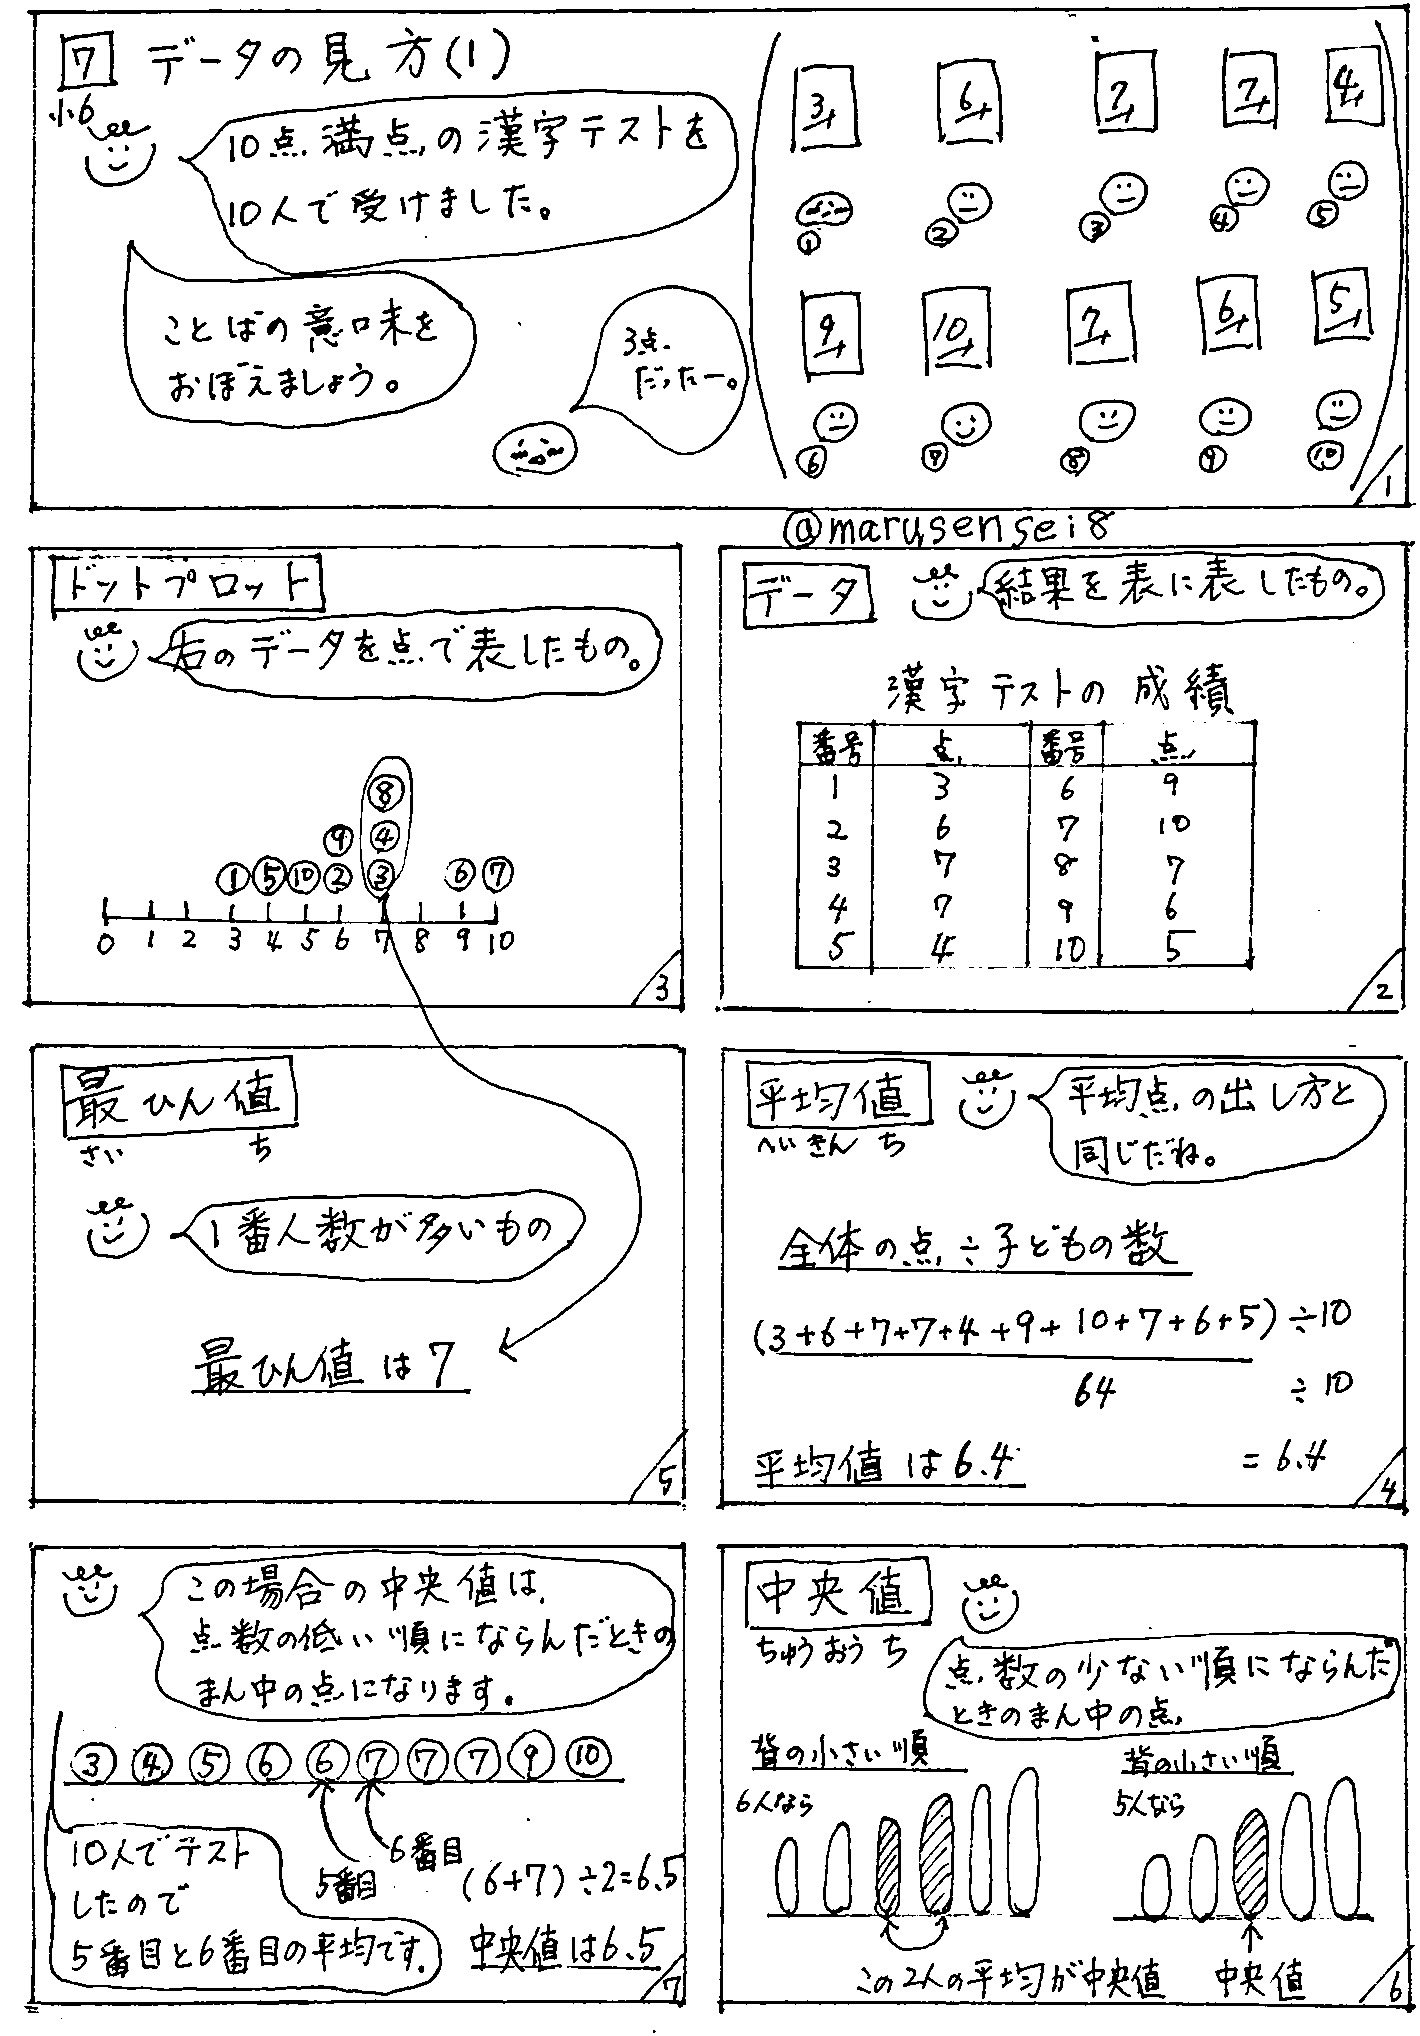 7 データの見方(1)
小6
10点満点の漢字テストを
10人で受けました。
ことばの意味を
おぼえましょう。
3点
だったー。
3点 6点 7点 7点 4点
① ② ③ ④ ⑤
9点 10点 7点 6点 5点
⑥ ⑦ ⑧ ⑨ ⑩
1
@marusensei8
データ
結果を表に表したもの。
漢字テストの成績
番号 点 番号 点
1 3 6 9
2 6 7 10
3 7 8 7
4 7 9 6
5 4 10 5
2
ドットプロット
右のデータを点で表したもの。
⑧
⑨ ④
① ⑤ ⑩ ② ③ ⑥ ⑦
0 1 2 3 4 5 6 7 8 9 10
3
平均値
へいきんち
平均点の出し方と
同じだね。
全体の点÷子どもの数
(3+6+7+7+4+9+10+7+6+5)÷10
64 ÷10
=6.4
平均値は6.4
4
最ひん値
さい ち
1番人数が多いもの
最ひん値は7
5
中央値
ちゅうおうち
点数の少ない順にならんだ
ときのまん中の点
背の小さい順
6人なら
この2人の平均が中央値
背の小さい順
5人なら
中央値
6
この場合の中央値は、
点数の低い順にならんだときの
まん中の点になります。
③ ④ ⑤ ⑥ ⑥ ⑦ ⑦ ⑦ ⑨ ⑩
5番目
6番目
10人でテスト
したので
5番目と6番目の平均です。
(6+7)÷2=6.5
中央値は6.5
7